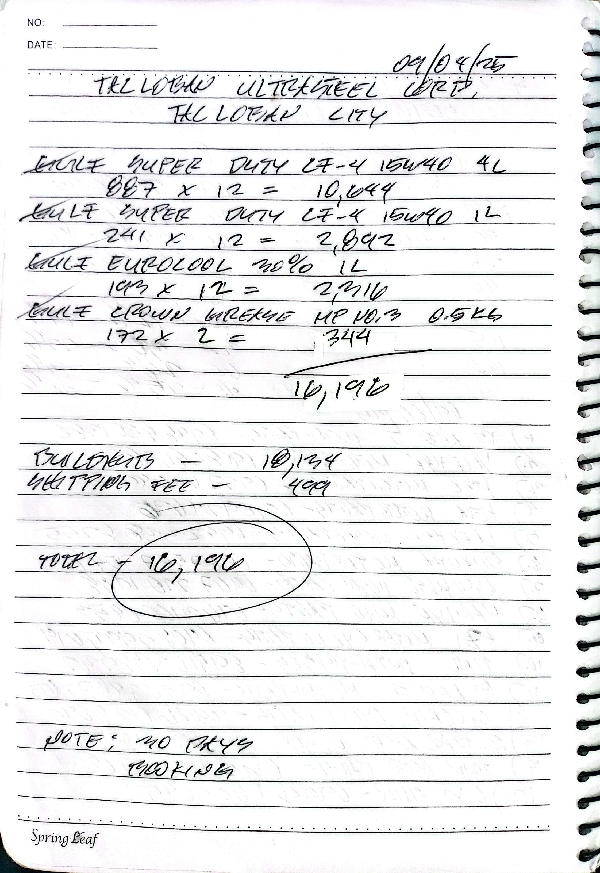 NO:
DATE:
09/04/25
TACLOBAN ULTRASTEEL CORP.
TACLOBAN CITY
GULF SUPER DUTY CF-4 15W40 4L
887 x 12 = 10,644
GULF SUPER DUTY CF-4 15W40 1L
241 x 12 = 2,892
GULF EUROCOOL 30% 1L
193 x 12 = 2,316
GULF CROWN GREASE MP NO.3 0.5KG
172 x 2 = 344
16,196
- 10,134
SHIPPING FEE - 499
TOTAL - 16,196
NOTE: 30 DAYS
BOOKING
Spring Leaf